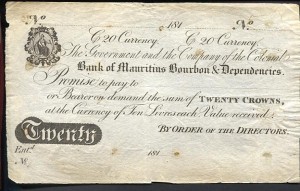 No 181 No
C 20 Currency C 20 Currency
The Government and the Company of the Colonial
Bank of Mauritius Bourbon & Dependencies.
Promise to pay to
or Bearer on demand the sum of TWENTY CROWNS,
at the Currency of Ten Livres each Value received
Twenty By ORDER OF THE DIRECTORS.
Entd.
No 181